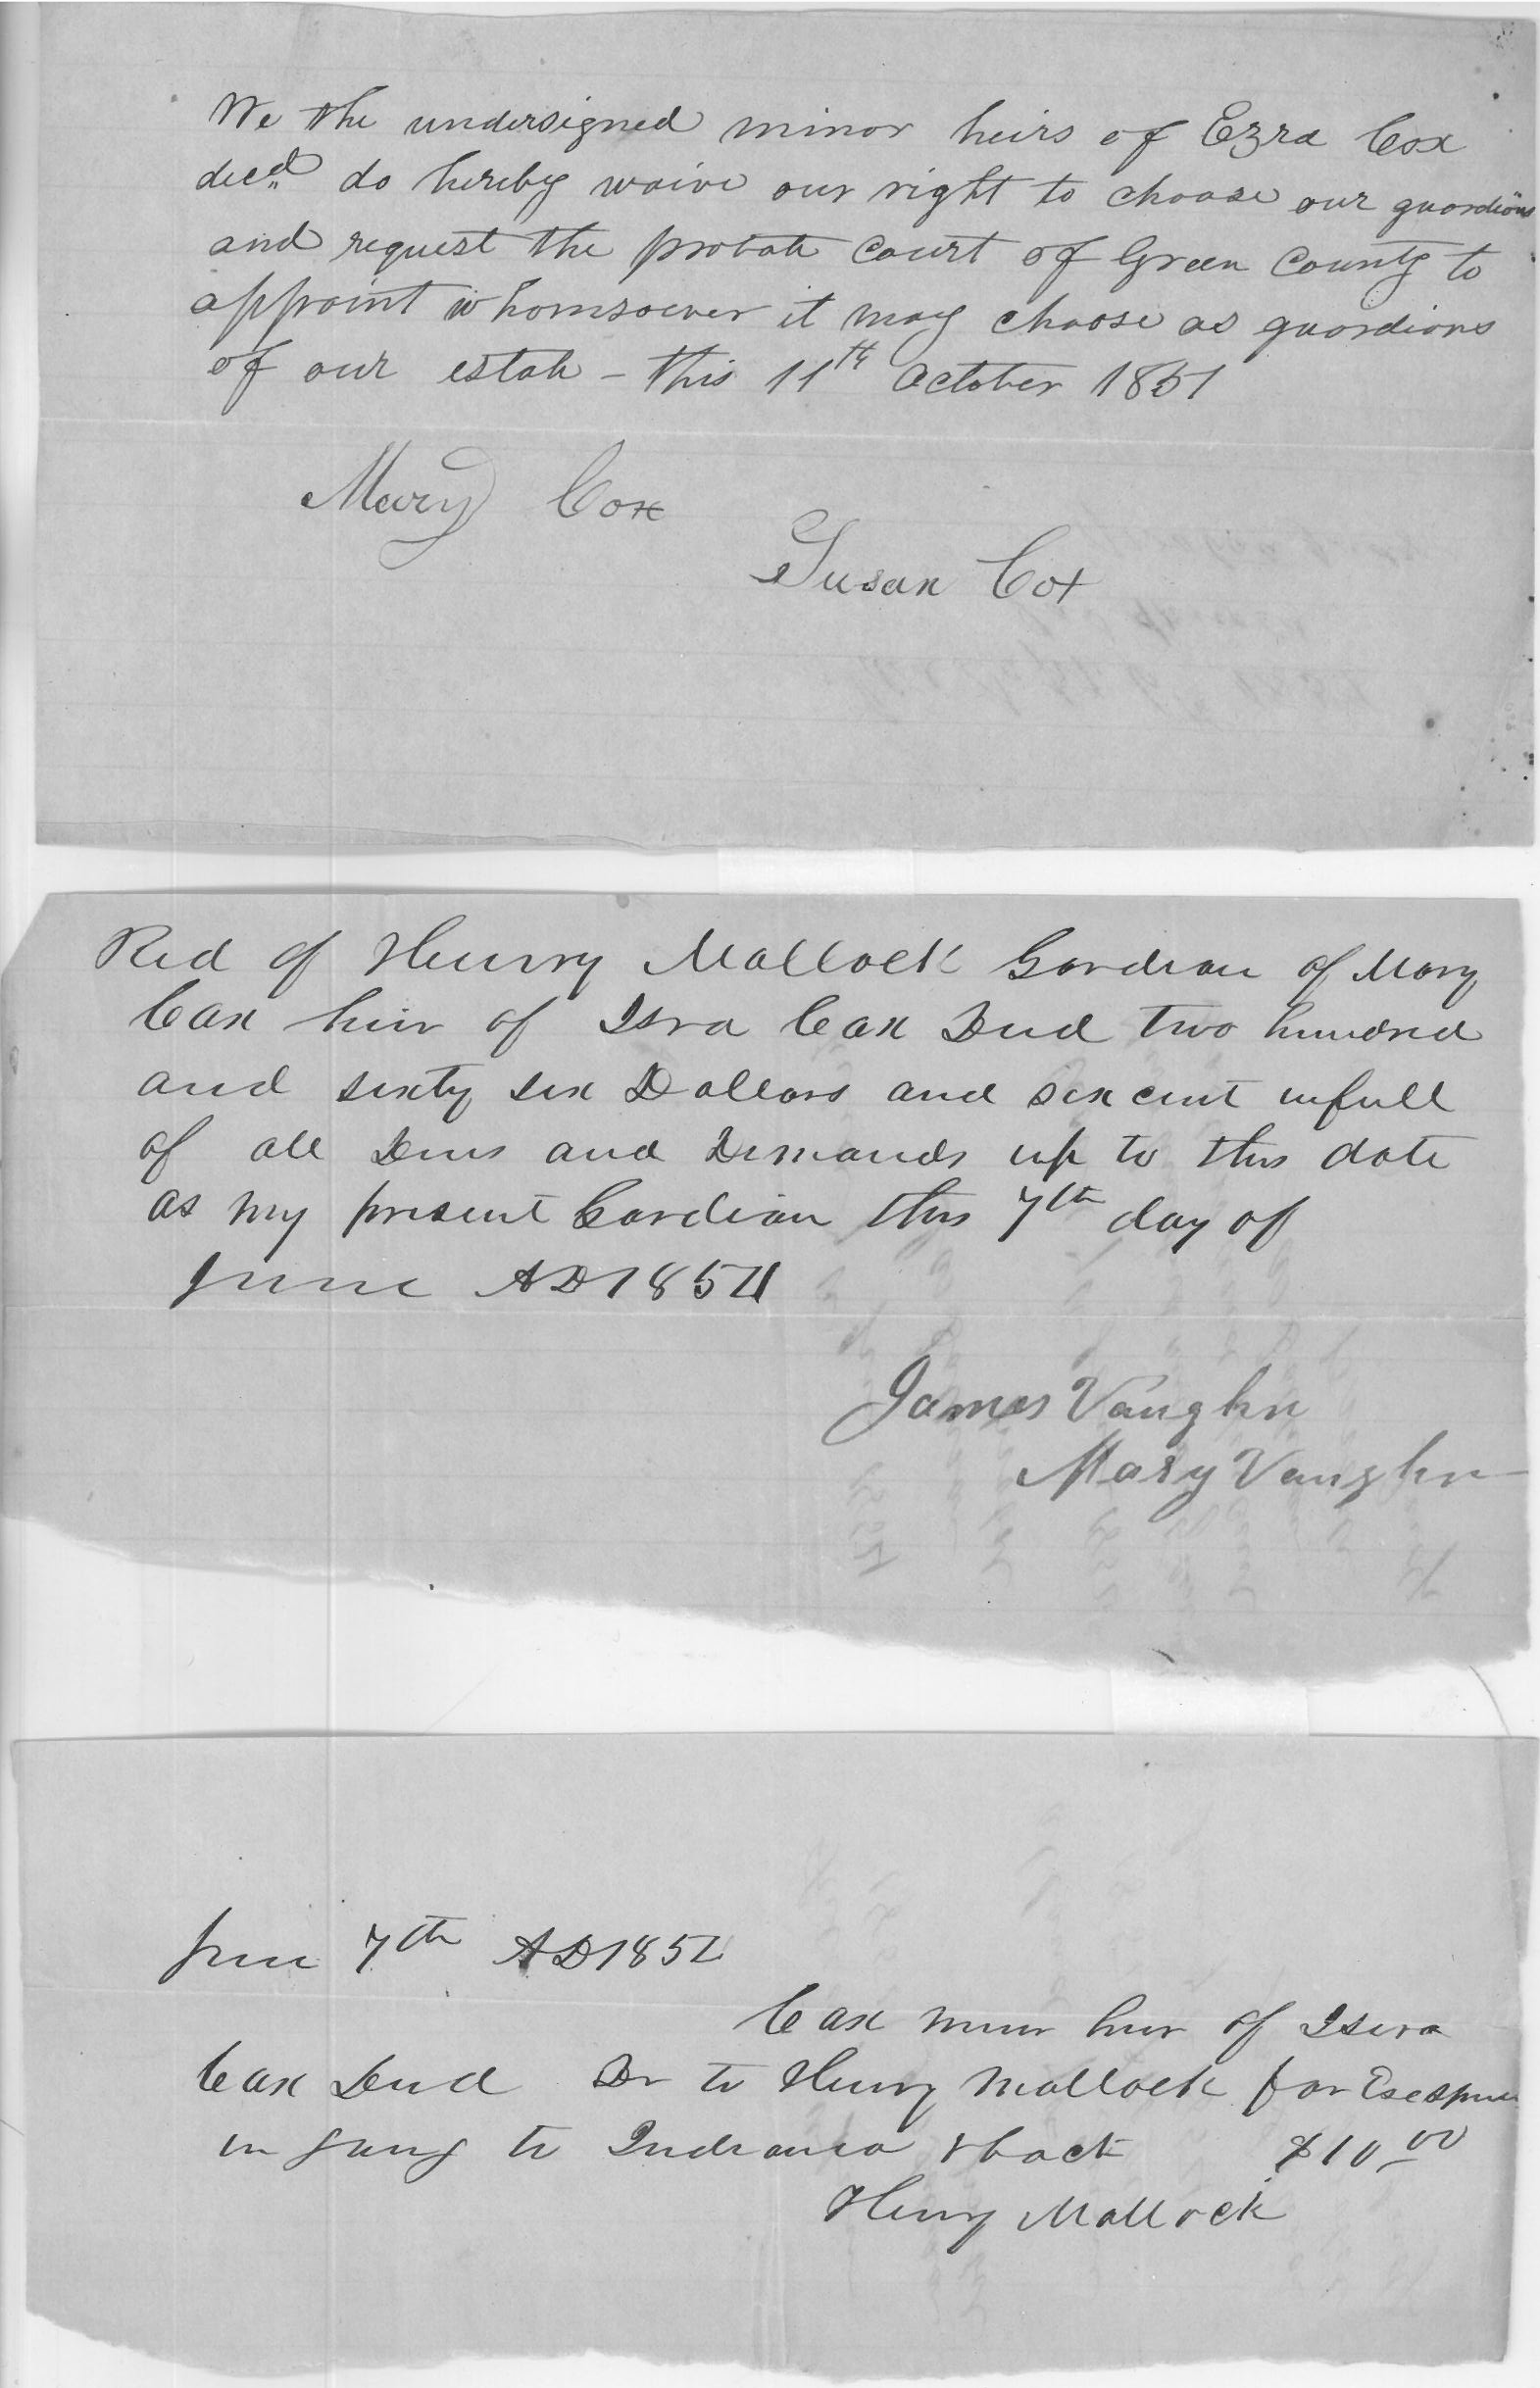 We the undersigned minor heirs of Ezra Cox
decd do hereby waive our right to choose our guardians
and request the probate Court of Green County to
appoint whomsoever it may choose as guardians
of our estate - this 11th October 1851
Mary Cox
Susan Cox
Recd of Henry Mallock Gardian of Mary
Cax heir of Isra Cax Decd two hundred
and sixty six Dollars and six cent in full
of all Dues and Demands up to this date
as my present Gardian this 7th day of
June AD 1854
James Vaughn
Mary Vaughn
June 7th AD 185
Cax minor heir of Isera
Cax Decd Dr to Henry Mallock for
in going to Indiana & back $10.00
Henry Mallock